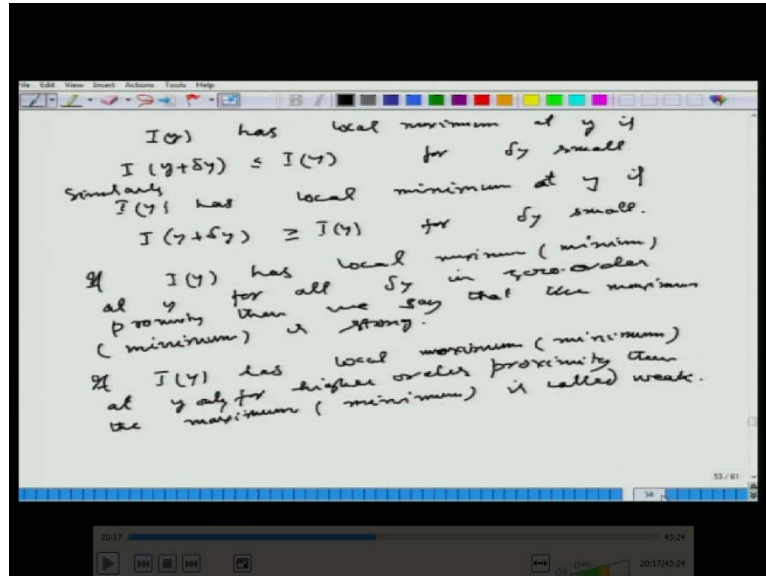 File Edit View Insert Actions Tools Help
I(y) has local maximum at y if
I(y+δy) ≤ I(y) for δy small
Similarly
I(y) has local minimum at y if
I(y+δy) ≥ I(y) for δy small.
If I(y) has local maximum (minimum)
at y for all δy in zero-order
proximity then we say that the maximum
(minimum) is strong.
If I(y) has local maximum (minimum)
at y only for higher order proximity then
the maximum (minimum) is called weak.
53 / 61
54
20:17 43:24
20:17/43:24